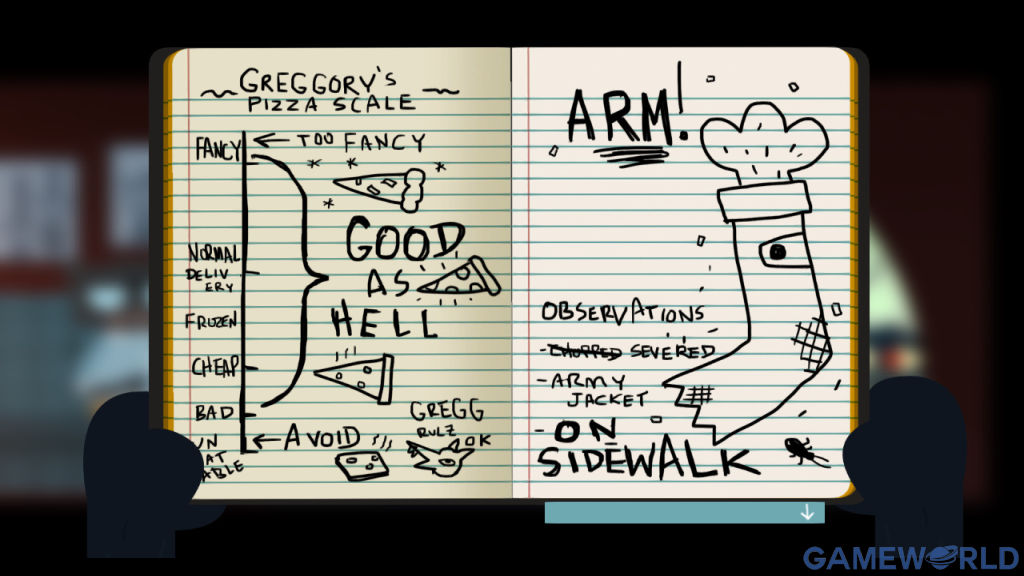 GREGGORY'S
PIZZA SCALE
FANCY
TOO FANCY
GOOD
AS
HELL
NORMAL
DELIV
ERY
FROZEN
CHEAP
BAD
UN
AT
ABLE
AVOID
GREGG
RULZ
OK
ARM!
OBSERVATIONS
- CHOPPED SEVERED
- ARMY
JACKET
- ON
SIDEWALK
GAMEWORLD